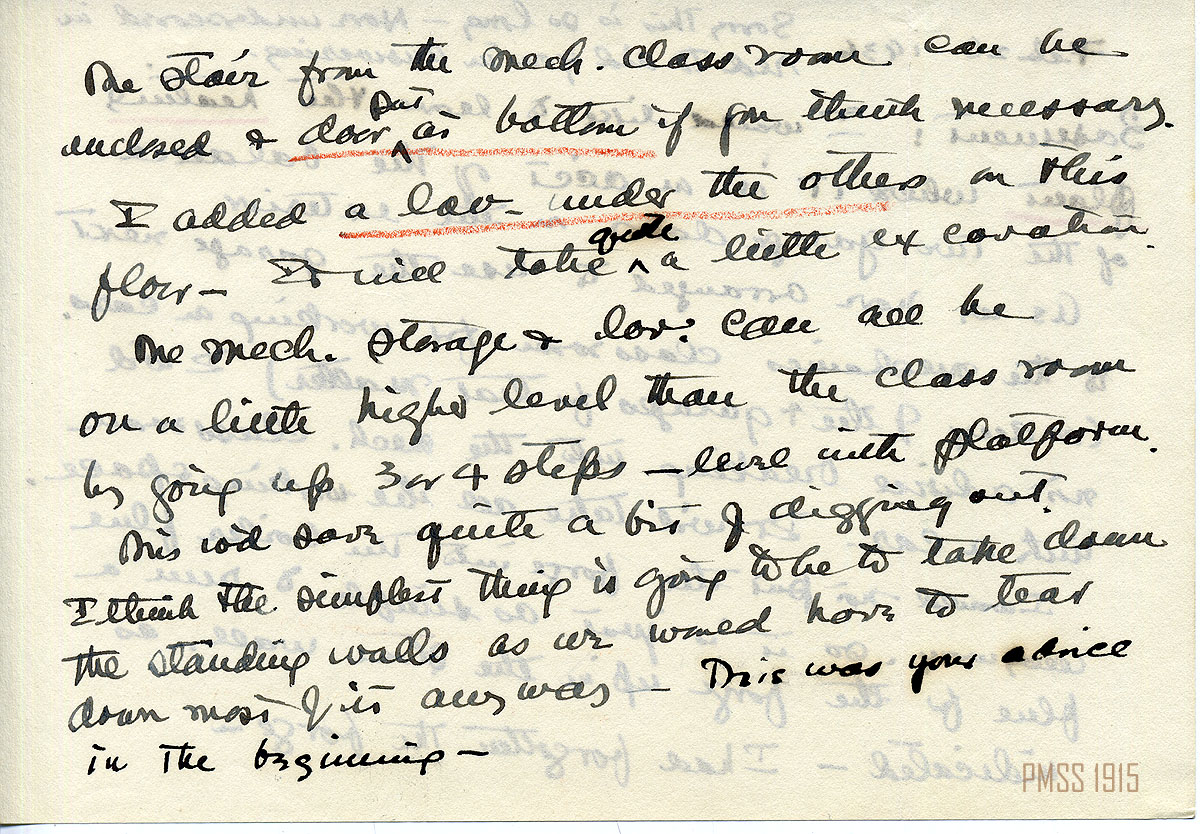 The stair from the mech. class room can be
enclosed & door put at bottom if you think necessary.
I added a lav. under the others on this
floor — It will take quite a little excavation.
The mech. storage & lav. can all be
on a little higher level than the class room
by going up 3 or 4 steps — level with platform.
This wd save quite a bit of digging out.
I think the simplest thing is going to be to take down
the standing walls as we would have to tear
down most of it anyway — This was your advice
in the beginning —
PMSS 1915